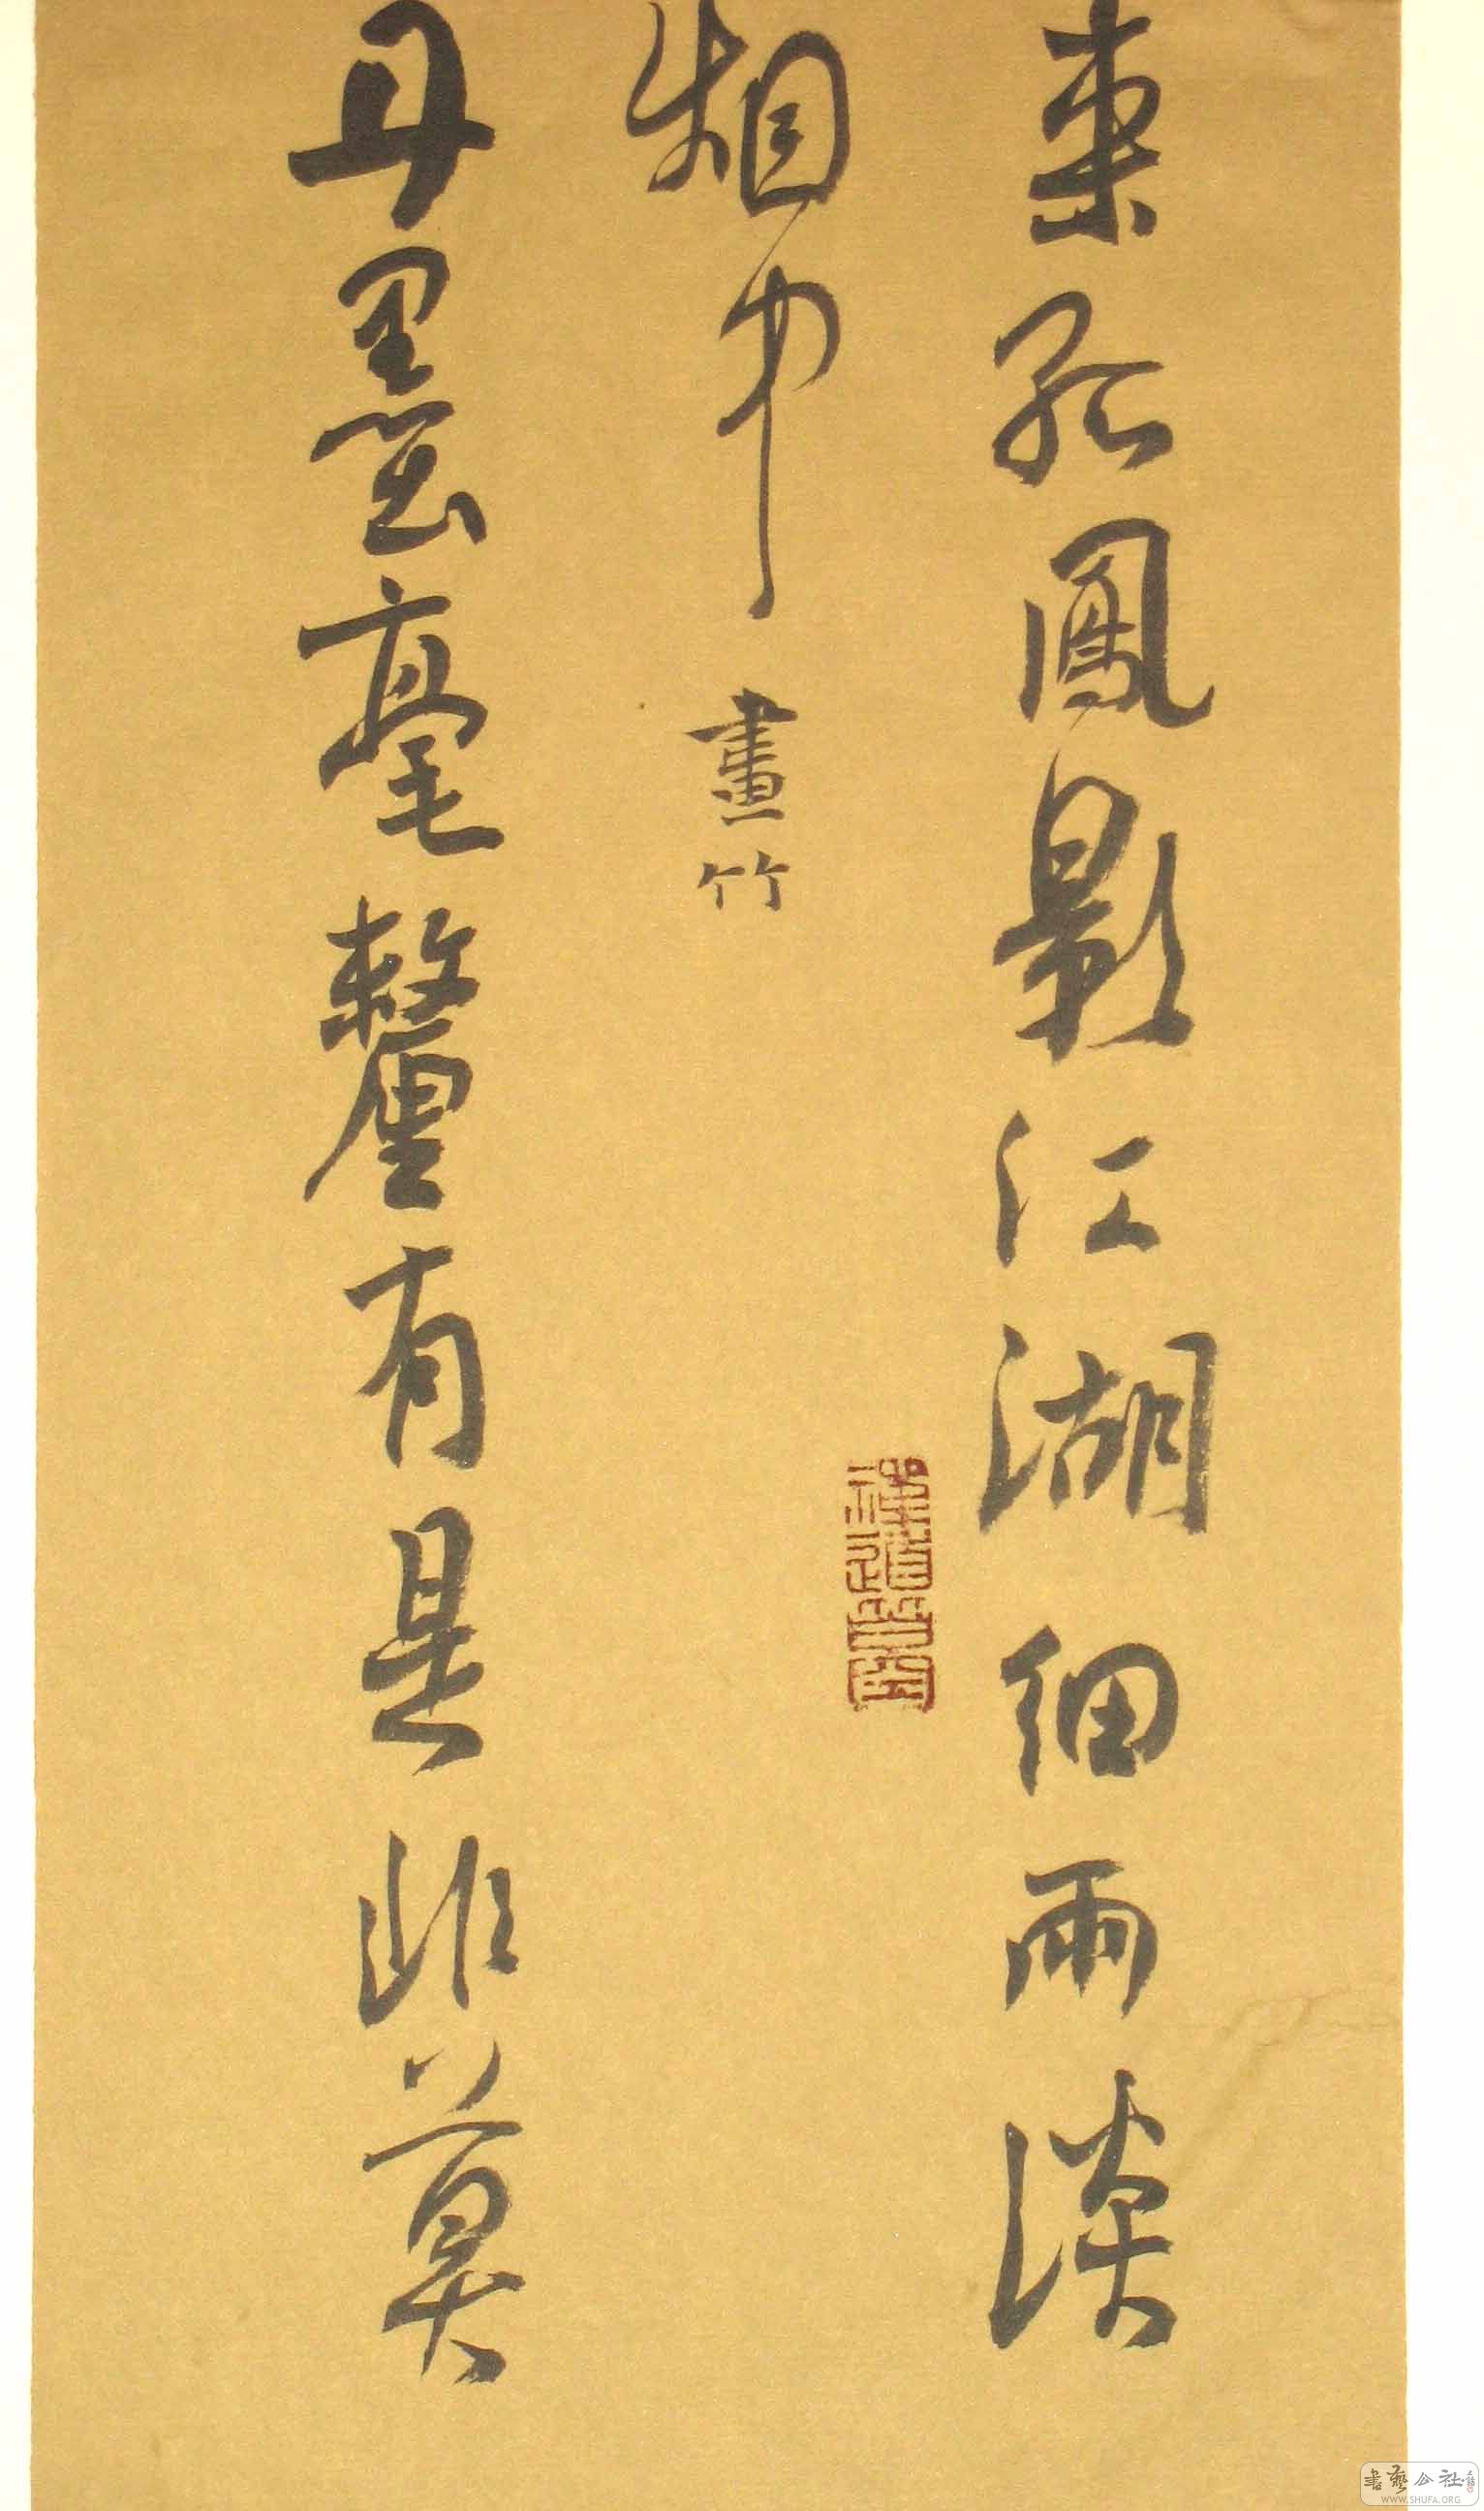 孤鳳影江湖細雨淡
烟中 畫竹
丹墨毫釐有是非莫
書藝公社
WWW.SHUFA.ORG